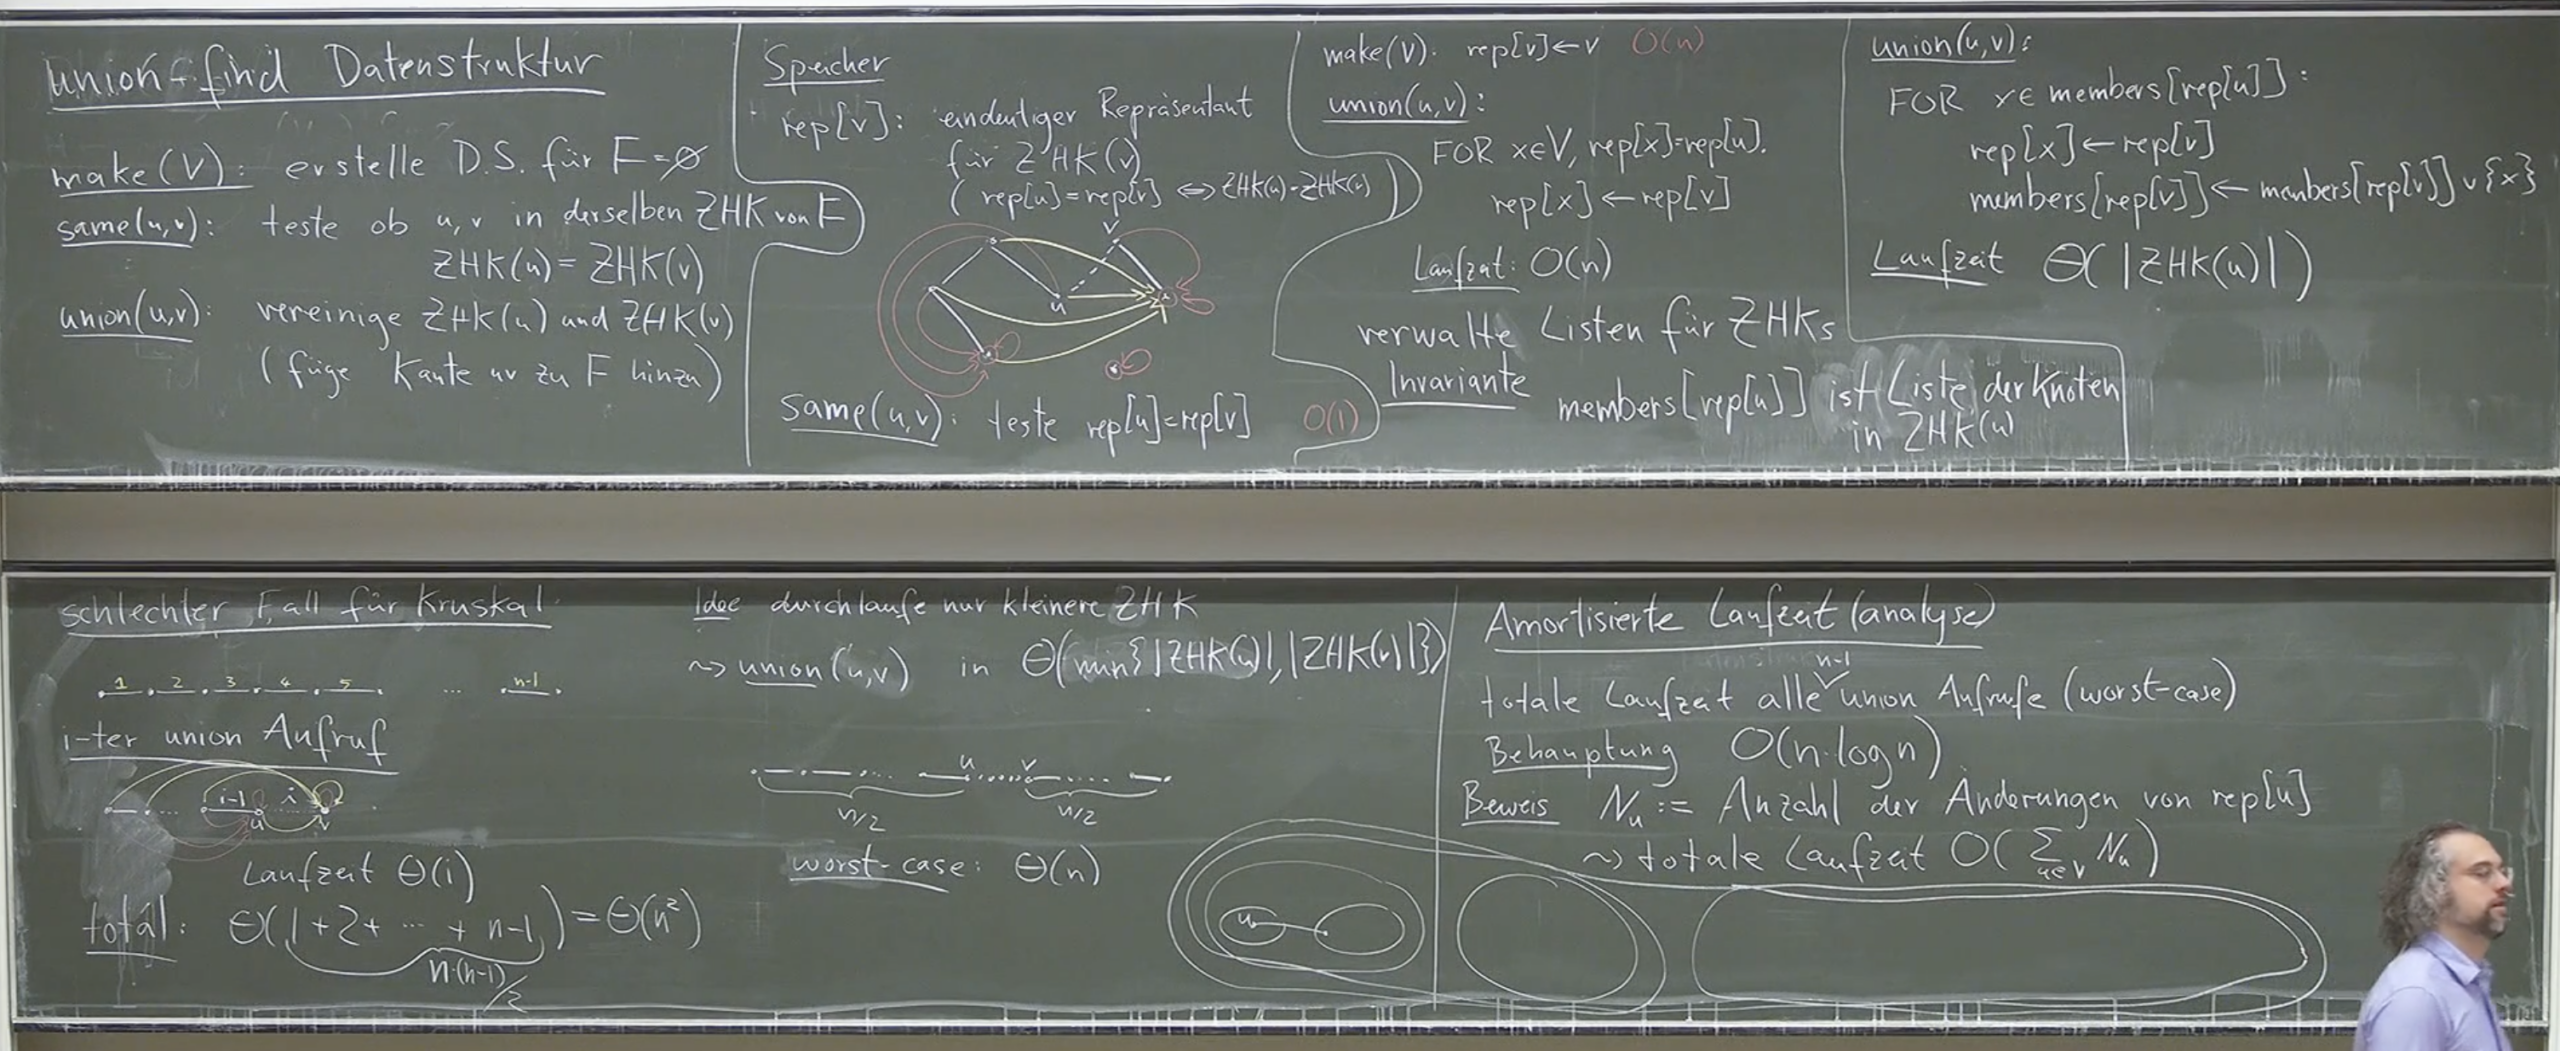 union-find Datenstruktur
make(V): erstelle D.S. für F=∅
same(u,v): teste ob u,v in derselben ZHK von F
ZHK(u) = ZHK(v)
union(u,v): vereinige ZHK(u) und ZHK(v)
(füge Kante uv zu F hinzu)
Speicher
rep[v]: eindeutiger Repräsentant
für ZHK(v)
(rep[u]=rep[v] ⇔ ZHK(u)=ZHK(v))
v
u
same(u,v): teste rep[u]=rep[v] O(1)
make(V): rep[v]←v O(n)
union(u,v):
FOR x∈V, rep[x]=rep[u].
rep[x]←rep[v]
Laufzeit: O(n)
verwalte Listen für ZHKs
Invariante members[rep[u]] ist Liste der Knoten
in ZHK(u)
union(u,v):
FOR x∈members[rep[u]]:
rep[x]←rep[v]
members[rep[v]]←members[rep[v]]∪{x}
Laufzeit Θ(|ZHK(u)|)
schlechter Fall für Kruskal
1 2 3 4 5 ... n-1
i-ter union Aufruf
... i-1 i
u v
Laufzeit Θ(i)
total: Θ(1+2+ ... + n-1) = Θ(n²)
n·(n-1)/2
Idee durchlaufe nur kleinere ZHK
⇝ union(u,v) in Θ(min{|ZHK(u)|,|ZHK(v)|})
u v
n/2 n/2
worst-case: Θ(n)
Amortisierte Laufzeit(analyse)
totale Laufzeit alle n-1 union Aufrufe (worst-case)
Behauptung O(n·log n)
Beweis Nᵤ := Anzahl der Änderungen von rep[u]
⇝ totale Laufzeit O(∑ᵤ∈V Nᵤ)
u